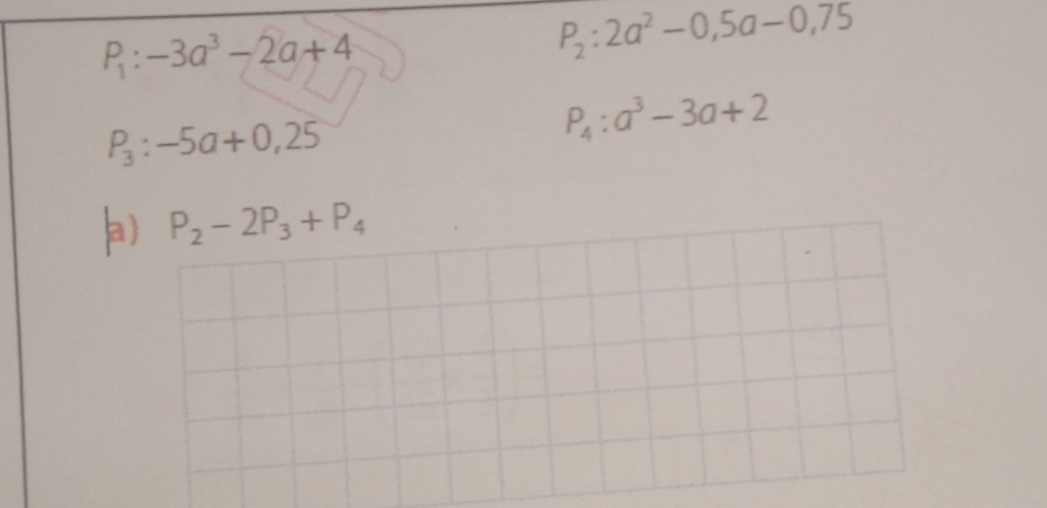 P₁: −3a³ − 2a + 4
P₂: 2a² − 0,5a − 0,75
P₃: −5a + 0,25
P₄: a³ − 3a + 2
a) P₂ − 2P₃ + P₄